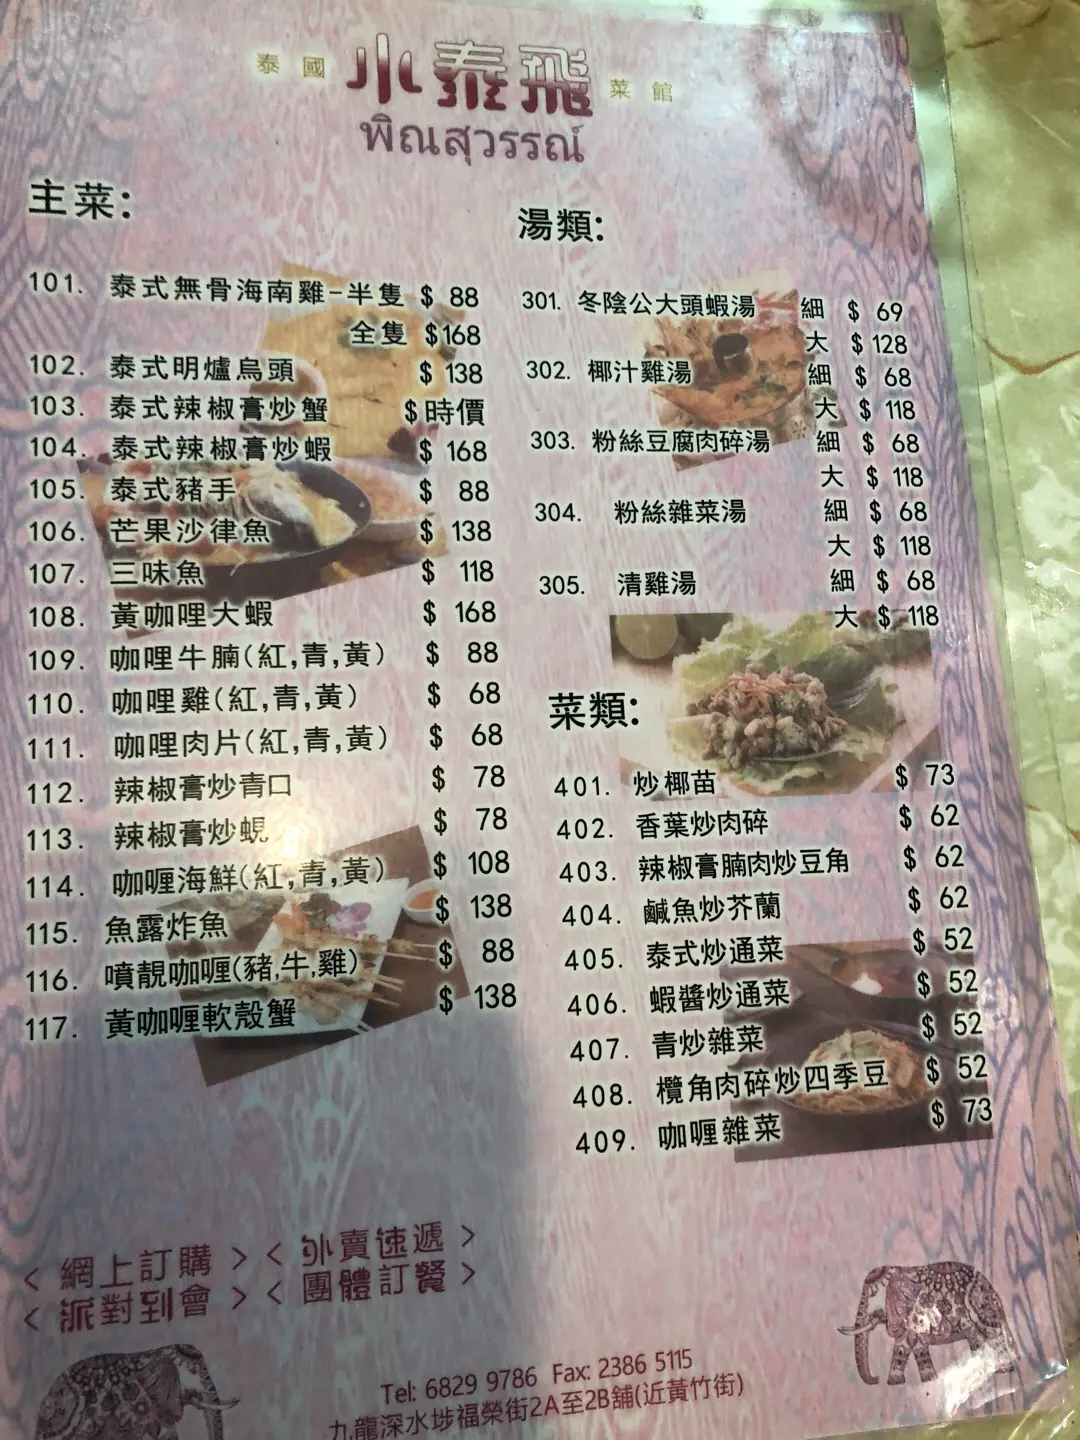 泰國 小泰飛 菜館
พิณสุวรรณ์
主菜:
101. 泰式無骨海南雞-半隻 $ 88
全隻 $168
102. 泰式明爐烏頭 $ 138
103. 泰式辣椒膏炒蟹 $時價
104. 泰式辣椒膏炒蝦 $ 168
105. 泰式豬手 $ 88
106. 芒果沙律魚 $ 138
107. 三味魚 $ 118
108. 黃咖哩大蝦 $ 168
109. 咖哩牛腩(紅,青,黃) $ 88
110. 咖哩雞(紅,青,黃) $ 68
111. 咖哩肉片(紅,青,黃) $ 68
112. 辣椒膏炒青口 $ 78
113. 辣椒膏炒蜆 $ 78
114. 咖喱海鮮(紅,青,黃) $ 108
115. 魚露炸魚 $ 138
116. 噴靚咖喱(豬,牛,雞) $ 88
117. 黃咖喱軟殼蟹 $ 138
湯類:
301. 冬陰公大頭蝦湯 細 $ 69
大 $ 128
302. 椰汁雞湯 細 $ 68
大 $ 118
303. 粉絲豆腐肉碎湯 細 $ 68
大 $ 118
304. 粉絲雜菜湯 細 $ 68
大 $ 118
305. 清雞湯 細 $ 68
大 $ 118
菜類:
401. 炒椰苗 $ 73
402. 香葉炒肉碎 $ 62
403. 辣椒膏腩肉炒豆角 $ 62
404. 鹹魚炒芥蘭 $ 62
405. 泰式炒通菜 $ 52
406. 蝦醬炒通菜 $ 52
407. 青炒雜菜 $ 52
408. 欖角肉碎炒四季豆 $ 52
409. 咖喱雜菜 $ 73
< 網上訂購 > < 外賣速遞 >
< 派對到會 > < 團體訂餐 >
Tel: 6829 9786 Fax: 2386 5115
九龍深水埗福榮街2A至2B舖(近黃竹街)